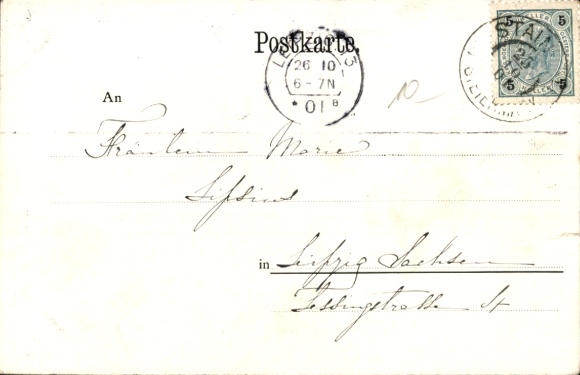 Postkarte.
LEIPZIG 13
26 10
6-7N
* 01 B
5 5
5 5
STAINZ
10-
An
Fräulein Marie
Lipsius
in Leipzig Sachsen
Lessingstrasse 4